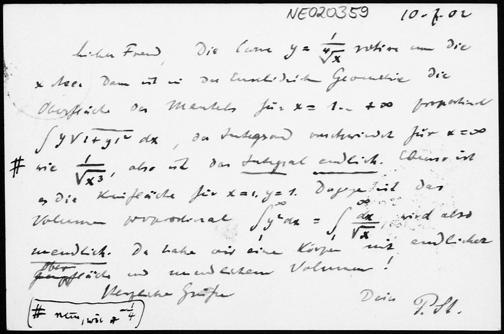 NE020359 10-7-02
Lieber Freund, Die Curve y = 1/⁴√x rotiere um die
x Axe. Dann ist in der Euklidischen Geometrie die
Oberfläche des Mantels für x = 1 ... +∞ proportional
∫ y √1+y'² dx, der Integrand verschwindet für x = ∞
# wie 1/√x³, also ist das Integral endlich. Ebenso ist
es die Kreisfläche für x=1, y=1. Dagegen ist das
Volumen proportional ∫₁ y² dx = ∫₁ dx/√x, wird also
unendlich. Da habe wir eine Körper mit endlicher
Oberfläche und unendlichem Volumen!
Herzliche Grüße Dein P. St.
(# nein, wie x^-1/4)